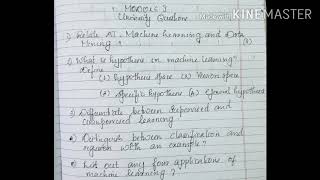 MODULE 3
University Questions
1) Relate AI, Machine Learning and Data
Mining
2) What is hypothesis in machine learning?
Define
(1) hypothesis space (2) Version space
(3) Specific hypothesis (4) General hypothesis
3) Differentiate between Supervised and
Unsupervised learning
4) Distinguish between classification and
regression with an example?
5) List out any four applications of
machine learning?
KINEMASTER